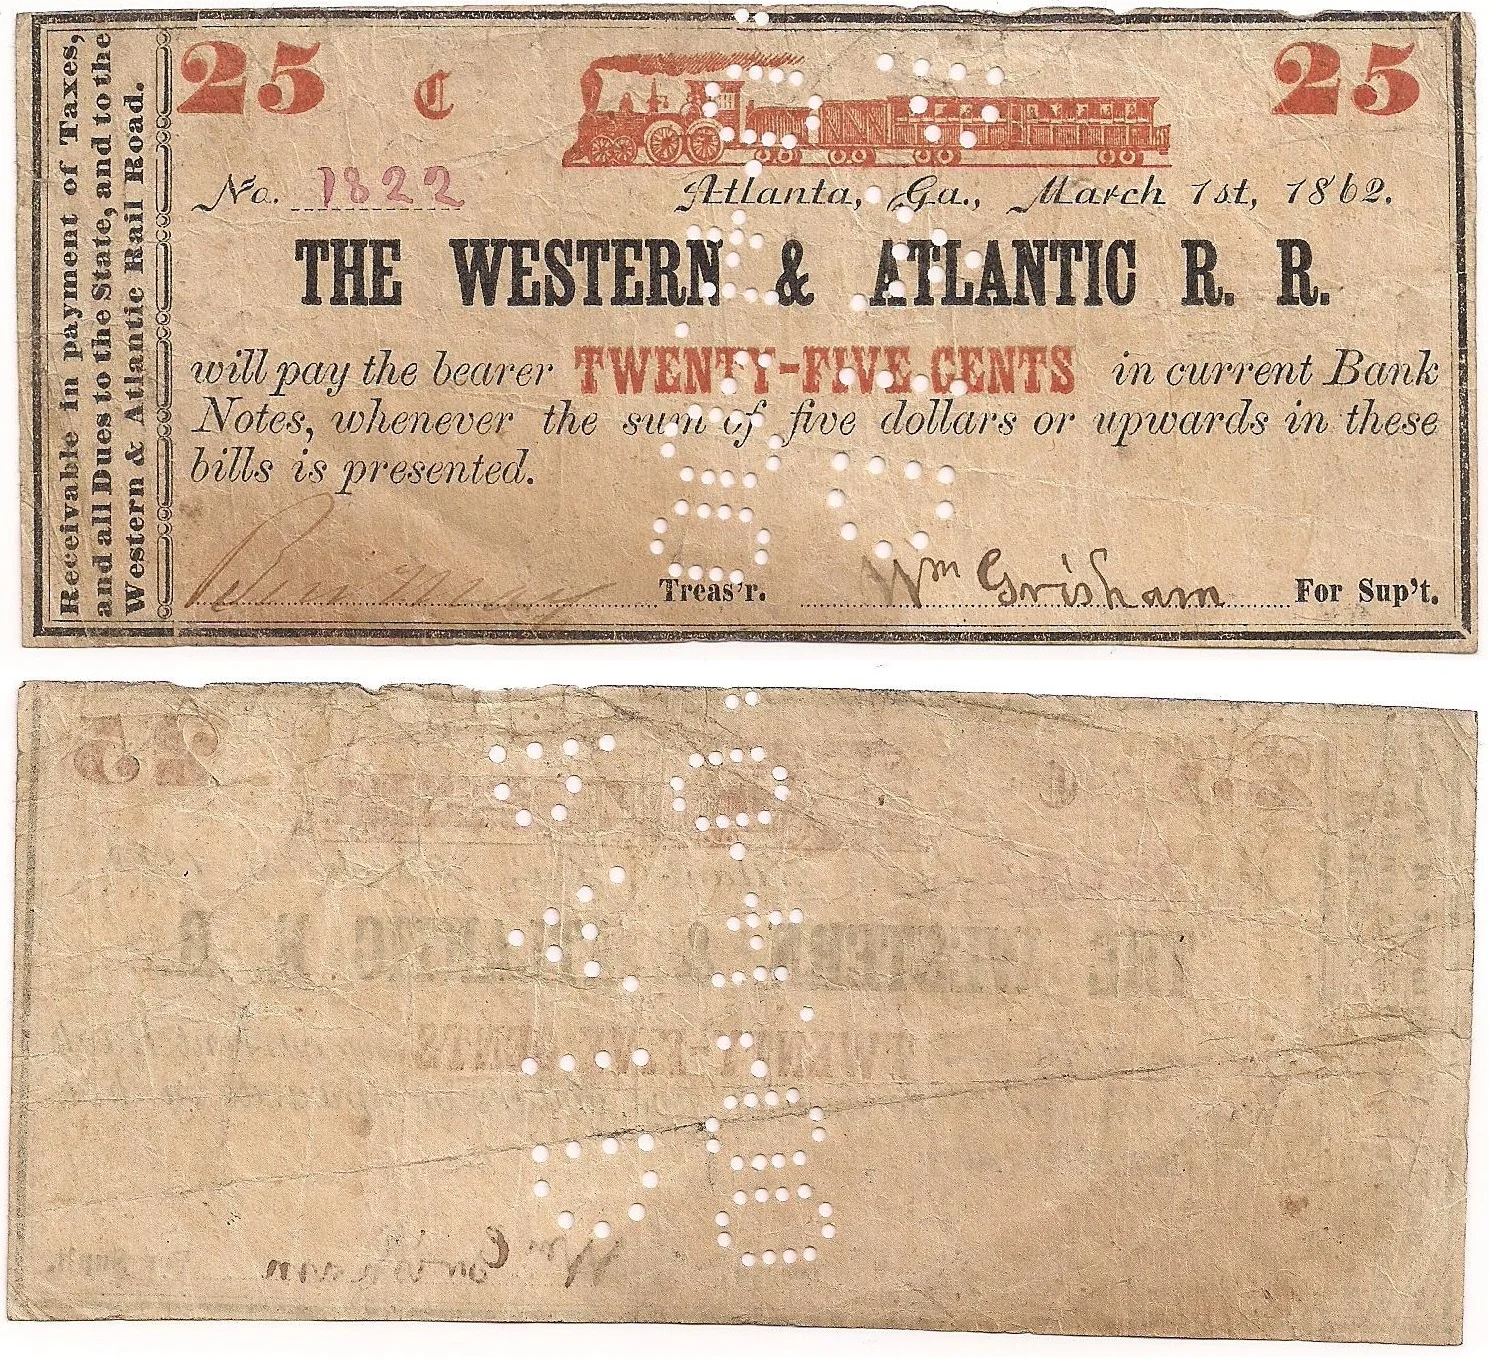 Receivable in payment of Taxes,
and all Dues to the State, and to the
Western & Atlantic Rail Road.
25 C 25
No. 1822 Atlanta, Ga., March 1st, 1862.
THE WESTERN & ATLANTIC R. R.
will pay the bearer TWENTY-FIVE CENTS in current Bank
Notes, whenever the sum of five dollars or upwards in these
bills is presented.
Treas'r. Wm Grisham For Sup't.